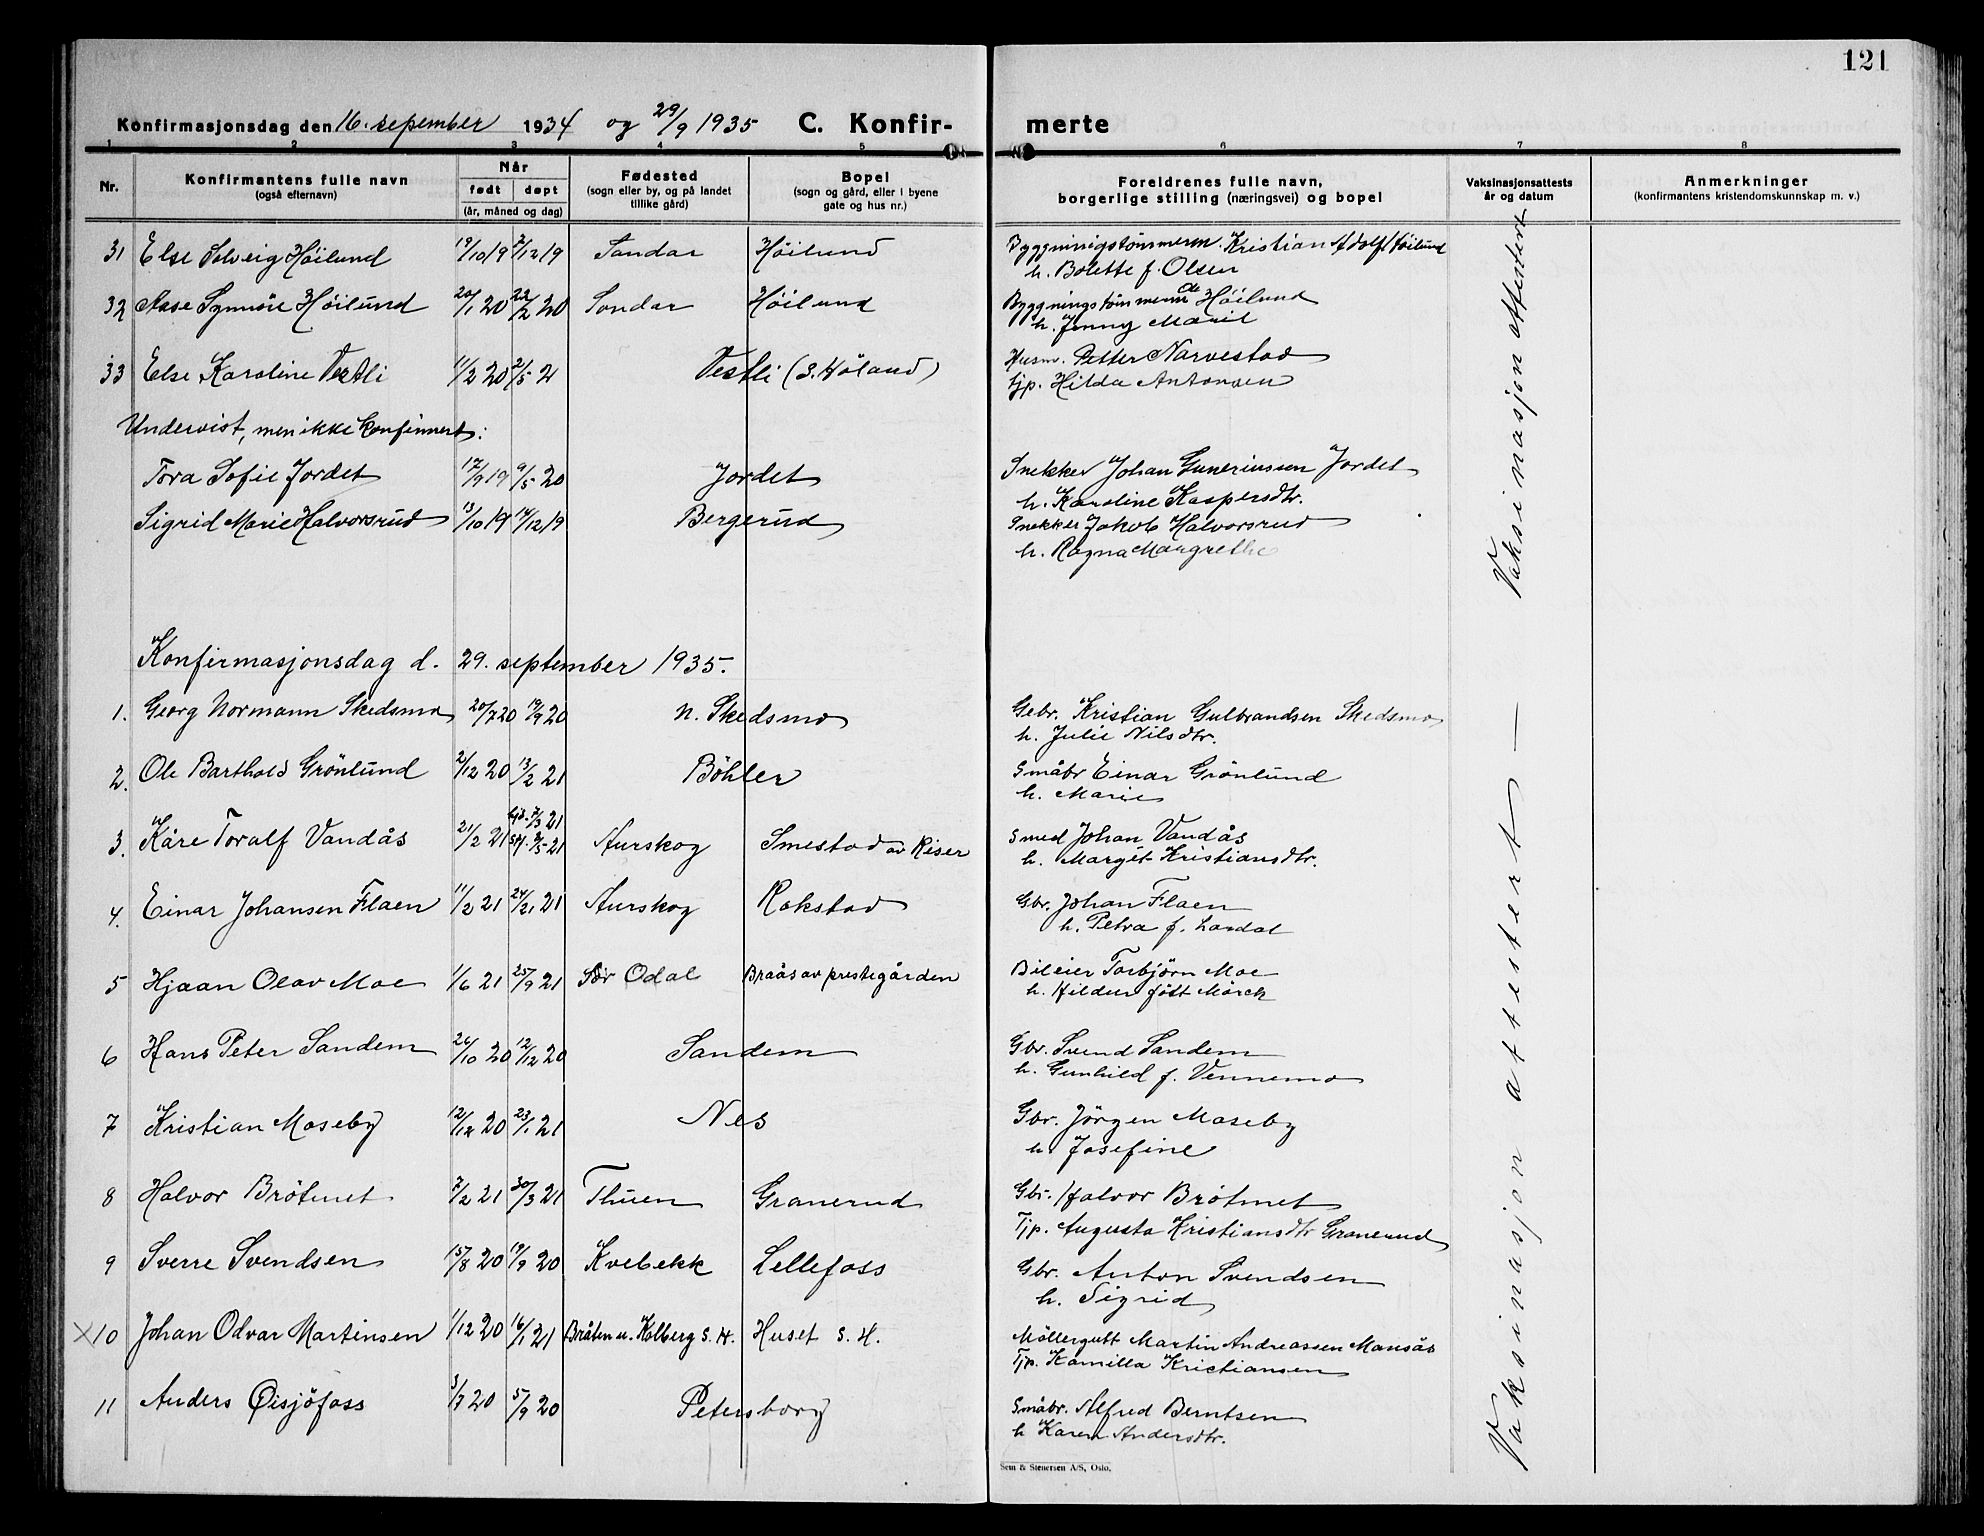 121
Konfirmasjonsdag den 16. sepember 1934 og 29/9 1935 C. Konfir- merte
1 2 3 4 5 6 7 8
Nr. Konfirmantens fulle navn (også efternavn) Når født døpt (år, måned og dag) Fødested (sogn eller by, og på landet tillike gård) Bopel (sogn og gård, eller i byene gate og hus nr.) Foreldrenes fulle navn, borgerlige stilling (næringsvei) og bopel Vaksinasjonsattests år og datum Anmerkninger (konfirmantens kristendomskunnskap m. v.)
31 Else Solveig Höilund 19/10 19 7/12 19 Sandar Höilund Byggningstömmerm. Kristian Adolf Höilund
h. Bolette f. Olsen
32 Aase Synnöve Höilund 20/1 20 22/2 20 Sandar Höilund Byggningstömmerm. Höilund
h. Jenny Marie
33 Else Karoline Vestli 11/2 20 2/5 21 Vestli (S. Höland) Husm. Petter Narvestad
tjp. Hilda Antonsen
Undervist, men ikke konfirmert:
Tora Sofie Jordet 17/9 19 9/5 20 Jordet Snekker Johan Guneriussen Jordet
h. Karoline Kaspersdtr.
Sigrid Marie Halvorsrud 13/10 19 14/12 19 Bergerud Snekker Jakob Halvorsrud
h. Ragna Margrethe
Vaksinasjon attestert
Konfirmasjonsdag d. 29. september 1935.
1. Georg Normann Skedsmo 20/7 20 19/9 20 N. Skedsmo Gebr. Kristian Gulbrandsen Skedsmo
h. Julie Nilsdtr.
2. Ole Barthold Grönlund 2/12 20 13/2 21 Böhler Småbr Einar Grönlund
h. Marie
3. Kåre Toralf Vandås 21/2 21 Aurskog Smestad av Riser Smed Johan Vandås
h. Margit Kristiansdtr.
4. Einar Johansen Flaen 11/2 21 24/21 21 Aurskog Rakstad Gbr. Johan Flaen
h. Petra f. Lardal
5 Hjaan Olav Moe 1/6 21 25/9 21 Sör Odal Braås av prestegården Bileier Torbjörn Moe
h. Hildur född Mörck
6 Hans Peter Sandem 26/10 20 12/12 20 Sandem Gbr. Svend Sandem
h. Gunhild f. Vennemo
7 Kristian Moseby 12/12 20 23/1 21 Nes Gbr. Jörgen Moseby
h Josefine
8 Halvor Brötmet 7/2 21 30/3 21 Thuen Granerud Gbr. Halvor Brötmet
Tjp. Augusta Kristiansdtr Granerud
9 Sverre Svendsen 15/8 20 19/9 20 Kvebekk Lellefoss Gbr. Anton Svendsen
h. Sigrid
x10 Johan Odvar Martinsen 1/12 20 16/1 21 Bråten u. Kolberg S. H. Huset S. H. Möllergutt Martin Andreassen Mansås
Tjp. Kamilla Kristiansen
11 Anders Öisjöfoss 3/7 20 5/9 20 Petersborg Småbr. Alfred Berntsen
h Karen Andersdtr.
Vaksinasjon attestert —
Sem & Stenersen A/S, Oslo.